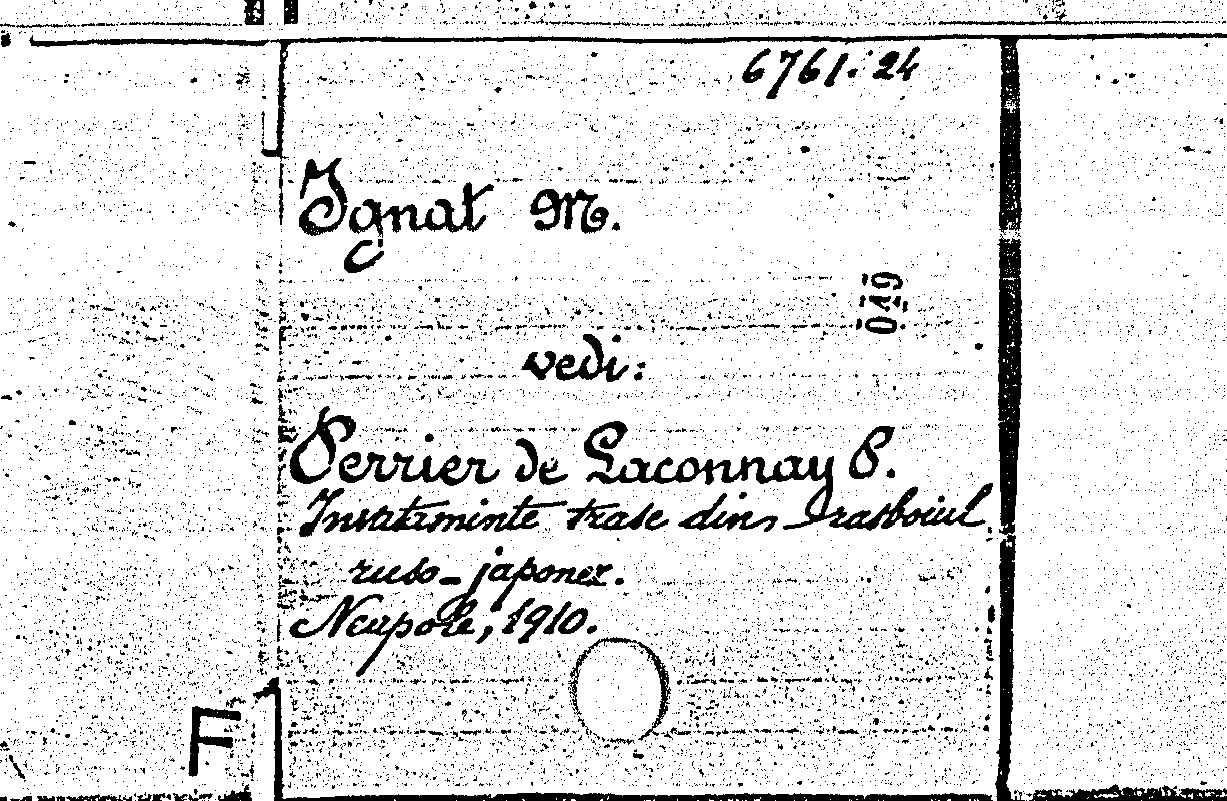 6761.'24
Ignat M.
049
vedi:
Perrier de Laconnay P.
Invataminte trase din rasboiul
ruso-japonez.
Neapole, 1910.
F